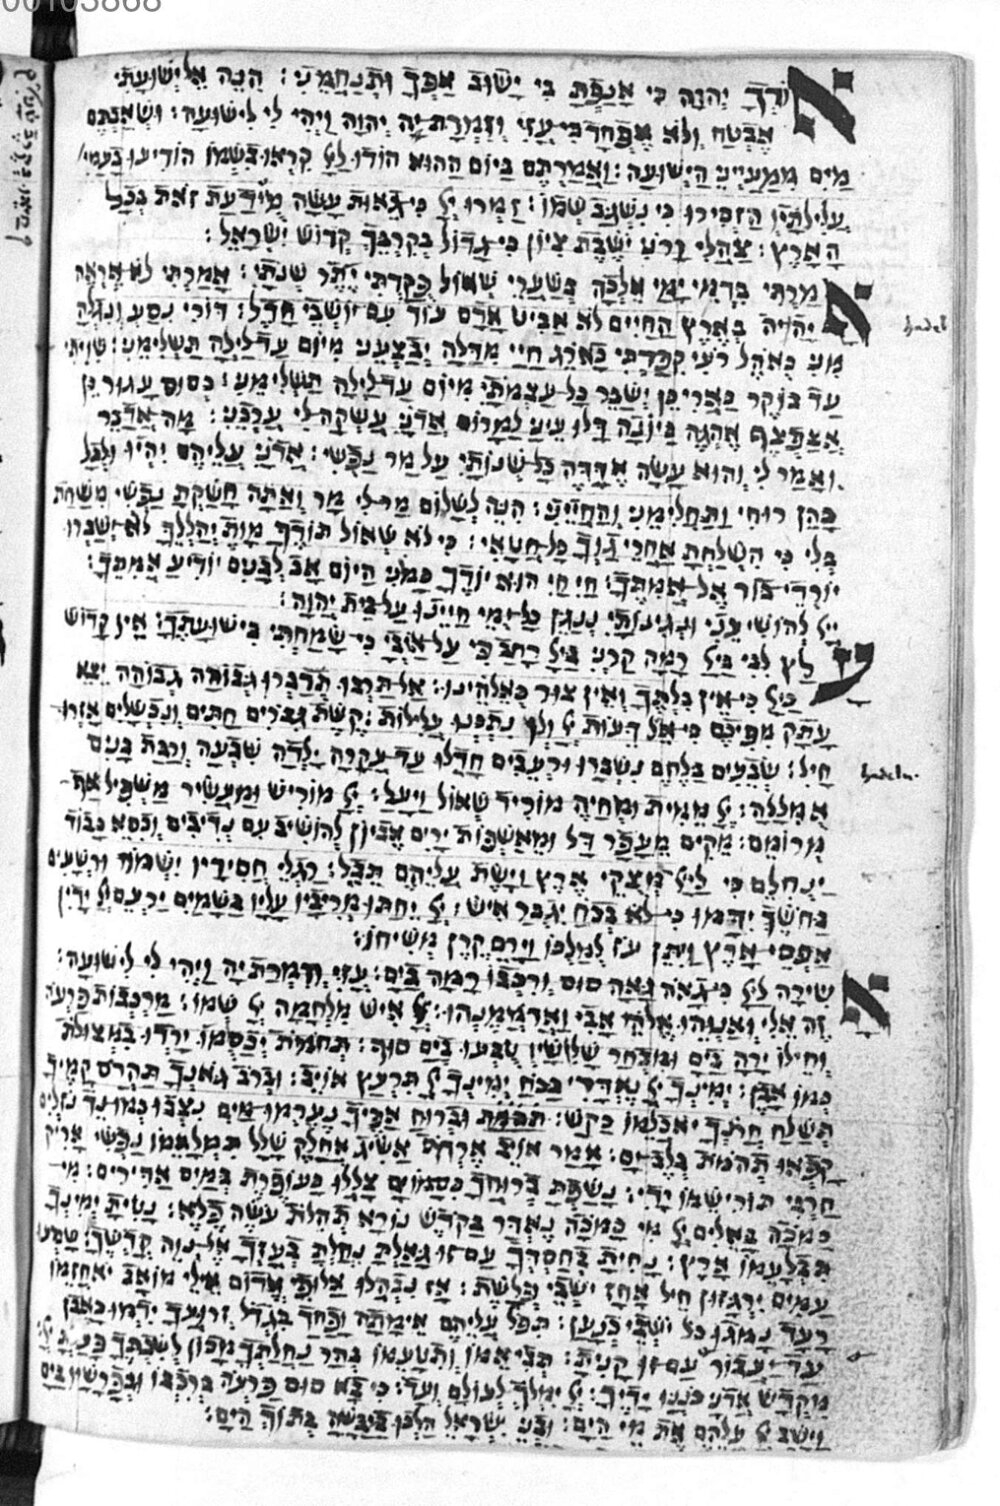 00103868
אודך יהוה כי אנפת בי ישוב אפך ותנחמני: הנה אל ישועתי
אבטח ולא אפחד כי עזי וזמרת יה יהוה ויהי לי לישועה: ושאבתם
מים ממעייני הישועה: ואמרתם ביום ההוא הודו קראו בשמו הודיעו בעמי'
עלילתיו הזכירו כי נשגב שמו: זמרו כי גאות עשה מידעת זאת בכל
הארץ: צהלי ורני ישבת ציון כי גדול בקרבך קדוש ישראל:
אמרתי בדמי ימי אלכה בשערי שאול פקדתי יתר שנתי: אמרתי לא אראה
יה יה בארץ החיים לא אביט אדם עוד עם יושבי חדל: דורי נסע ונגלה
מני כאהל רעי קפדתי כארג חיי מדלה יבצעני מיום עד לילה תשלימני: שויתי
עד בוקר כארי כן ישבר כל עצמתי מיום עד לילה תשלימני: כסוס עגור כן
אצפצף אהגה כיונה דלו עיני למרום אדני עשקה לי ערבני: מה אדבר
ואמר לי והוא עשה אדדה כל שנותי על מר נפשי: אדני עליהם יהיו ולכל
בהן רוחי ותחלימני והחייני: הנה לשלום מר לי מר ואתה חשקת נפשי משחת
בלי כי השלחת אחרי גוך כל חטאי: כי לא שאול תודך מות יהללך לא ישברו
יורדי בור אל אמתך: חי חי הוא יודך כמני היום אב לבנים יודיע אמתך:
להושיעני ונגינותי ננגן כל ימי חיינו על בית יהוה:
עלץ לבי רמה קרני רחב פי על אויבי כי שמחתי בישועתך: אין קדוש
כי אין בלתך ואין צור כאלהינו: אל תרבו תדברו גבוהה גבוהה יצא
עתק מפיכם כי אל דעות ולו נתכנו עלילות: קשת גברים חתים ונכשלים אזרו
חיל: שבעים בלחם נשכרו ורעבים חדלו עד עקרה ילדה שבעה ורבת בנים
אמללה: ממית ומחיה מוריד שאול ויעל: מוריש ומעשיר משפיל אף
מרומם: מקים מעפר דל ומאשפות ירים אביון להושיב עם נדיבים וכסא כבוד
ינחלם כי מצקי ארץ וישת עליהם תבל: רגלי חסידיו ישמור ורשעים
בחשך ידמו כי לא בכח יגבר איש: יחתו מריביו עליו בשמים ירעם ידין
אפסי ארץ ויתן עז למלכו וירם קרן משיחו:
אשירה כי גאה גאה סוס ורכבו רמה בים: עזי וזמרת יה ויהי לי לישועה:
זה אלי ואנוהו אלהי אבי וארממנהו: איש מלחמה שמו: מרכבות פרעה
וחילו ירה בים ומבחר שלישיו טבעו בים סוף: תהמת יכסימו ירדו במצולת
כמו אבן: ימינך נאדרי בכח ימינך תרעץ אויב: וברב גאונך תהרס קמיך
תשלח חרנך יאכלמו כקש: וברוח אפיך נערמו מים נצבו כמו נד נזלים
קפאו תהמת בלב ים: אמר אויב ארדף אשיג אחלק שלל תמלאמו נפשי אריק
חרבי תורישמו ידי: נשפת ברוחך כסמו ים צללו כעופרת במים אדירים: מי
כמכה באלים מי כמכה נאדר בקדש נורא תהלת עשה פלא: נטית ימינך
תבלעמו ארץ: נחית בחסדך עם זו גאלת נהלת בעזך אל נוה קדשך: שמעו
עמים ירגזון חיל אחז ישבי פלשת: אז נבהלו אלופי אדום אילי מואב יאחזמו
רעד נמוגו כל ישבי כנען: תפל עליהם אימתה ופחד בגדל זרועך ידמו כאבן
עד יעבור עם זו קנית: תביאמו ותטעמו בהר נחלתך מכון לשבתך פעלת
מקדש אדני כוננו ידיך: ימלך לעולם ועד: כי בא סוס פרעה ברכבו ובפרשיו בים
וישב עליהם את מי הים: ובני ישראל הלכו ביבשה בתוך הים: